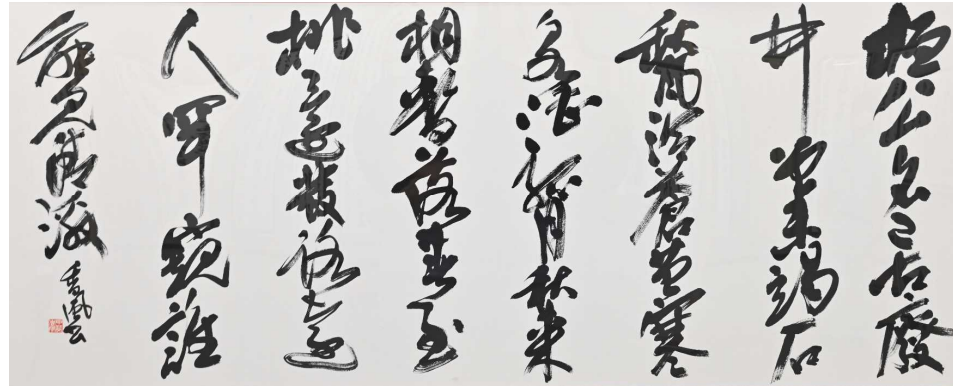 桓公名已古廢
井曾未竭石
甃冷蒼苔寒
泉湛孤月秋來
桐暫落春至
桃還發路遠
人罕窺誰
能見清澈